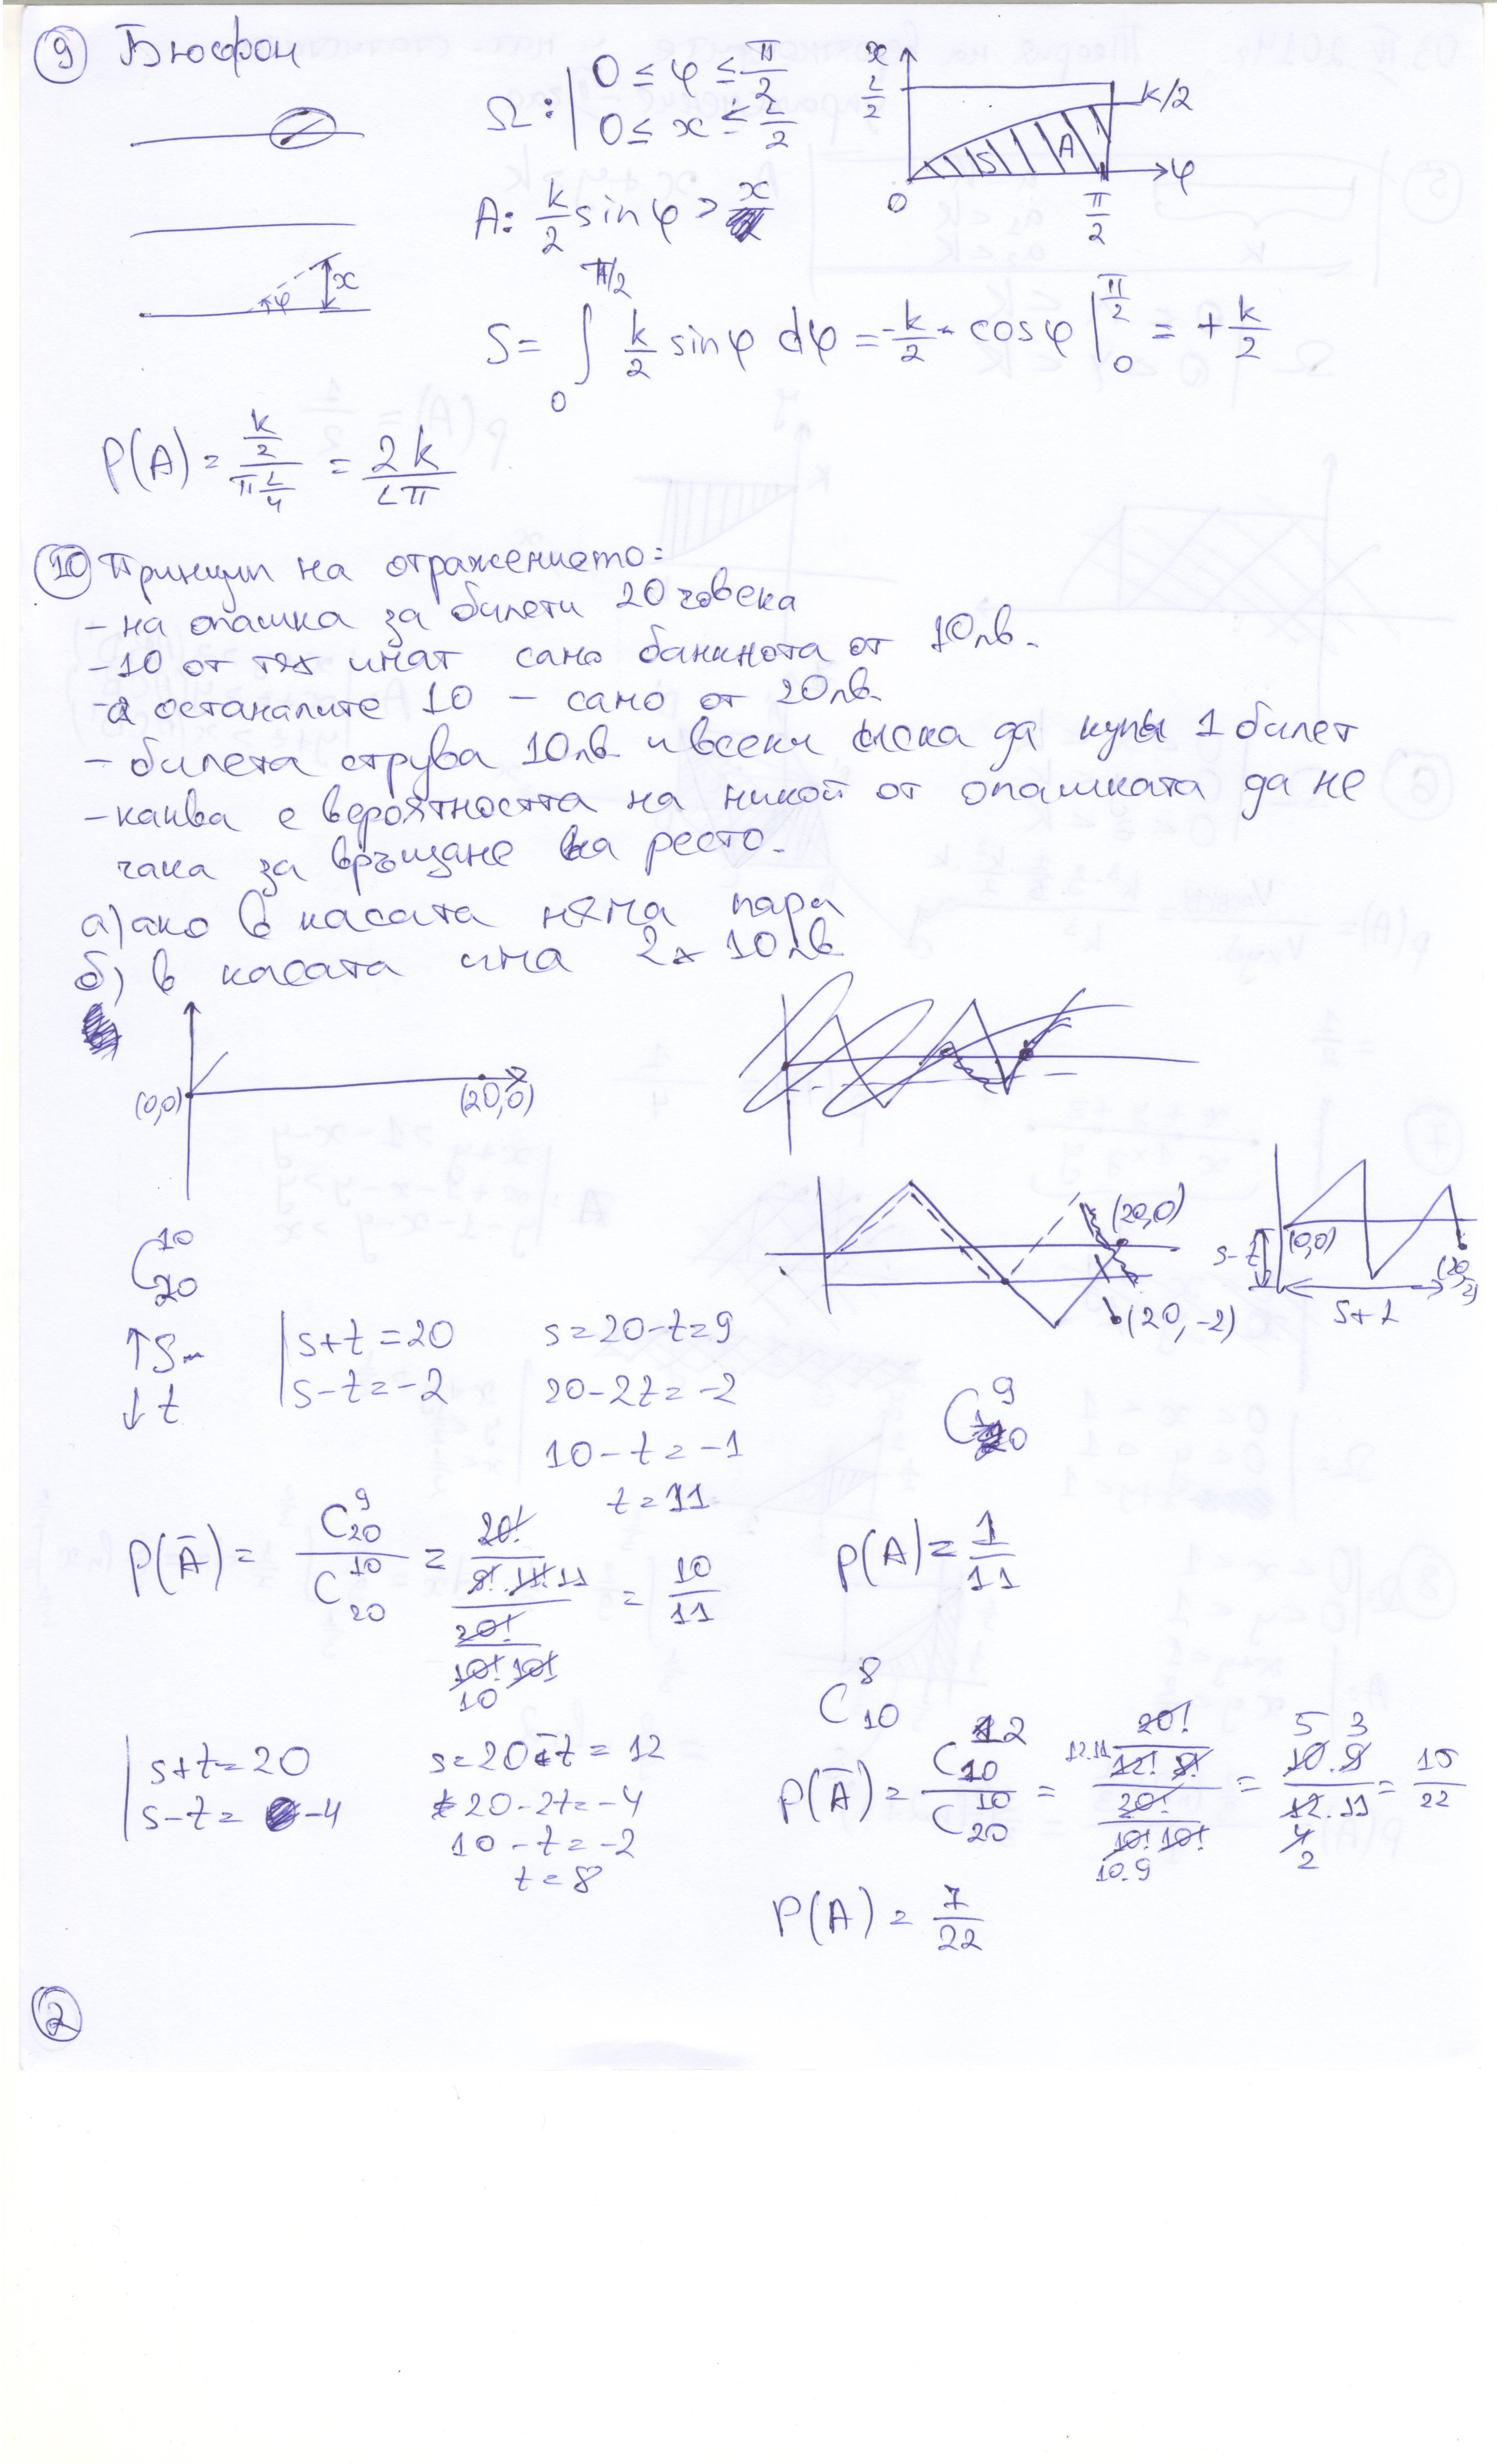 ⑨ Бюфон
Ω: | 0 ≤ φ ≤ π/2
0 ≤ x ≤ L/2
x
L/2
k/2
S
A
φ
0
π/2
A: k/2 sin φ > x
φ
x
S = ∫₀^{π/2} k/2 sin φ dφ = -k/2 · cos φ |₀^{π/2} = + k/2
P(A) = (k/2)/(π L/4) = 2k/(Lπ)
⑩ Принцип на отражението:
- на опашка за билети 20 човека
- 10 от тях имат само банкнота от 10лв.
- а останалите 10 – само от 20лв.
- билета струва 10лв и всеки иска да купи 1 билет
- каква е вероятността на никой от опашката да не
чака за връщане на ресто.
а) ако в касата няма пари
б) в касата има 2 x 10лв
(0,0)
(20,0)
(20,0)
(20,-2)
(0,0)
s-t
s+t
C₂₀¹⁰
↑S
↓t
| s+t = 20
s-t = -2
s = 20-t = 9
20-2t = -2
10-t = -1
t = 11
C₂₀⁹
P(Ā) = C₂₀⁹ / C₂₀¹⁰ = (20! / (9! 11!)) 11 / (20! / (10! 10!)) 10 = 10/11
P(A) = 1/11
C₁₀⁸
| s+t = 20
s-t = -4
s = 20-t = 12
20-2t = -4
10-t = -2
t = 8
P(Ā) = C₁₀¹² / C₂₀¹⁰ = 12.11 (20! / (12! 8!)) / (20! / (10! 10!)) 10.9 = 10.9 / 12.11 = 15/22
P(A) = 7/22
②